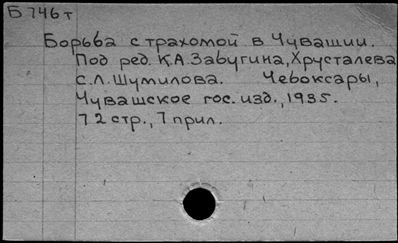 Б 746 т
Борьба с трахомой в Чувашии.
Под ред. К.А. Забугина, Хрусталева
С.Л. Шумилова. Чебоксары,
Чувашское гос. изд., 1935.
72 стр., 7 прил.